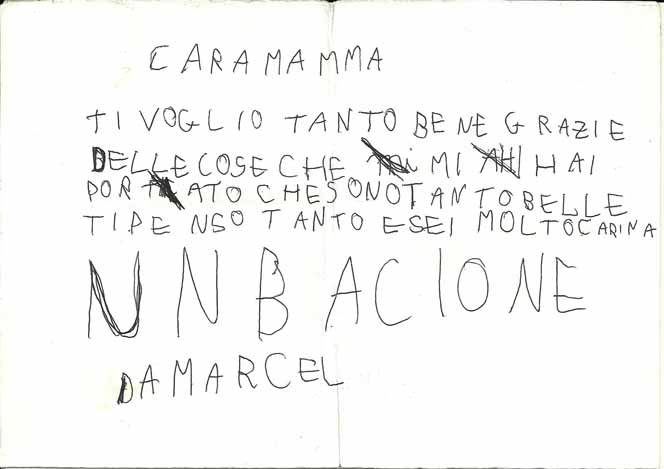 CARA MAMMA
TI VOGLIO TANTO BENE GRAZIE
DELLE COSE CHE MI HAI
PORTATO CHE SONO TANTO BELLE
TI PENSO TANTO E SEI MOLTO CARINA
UN BACIONE
DA MARCEL